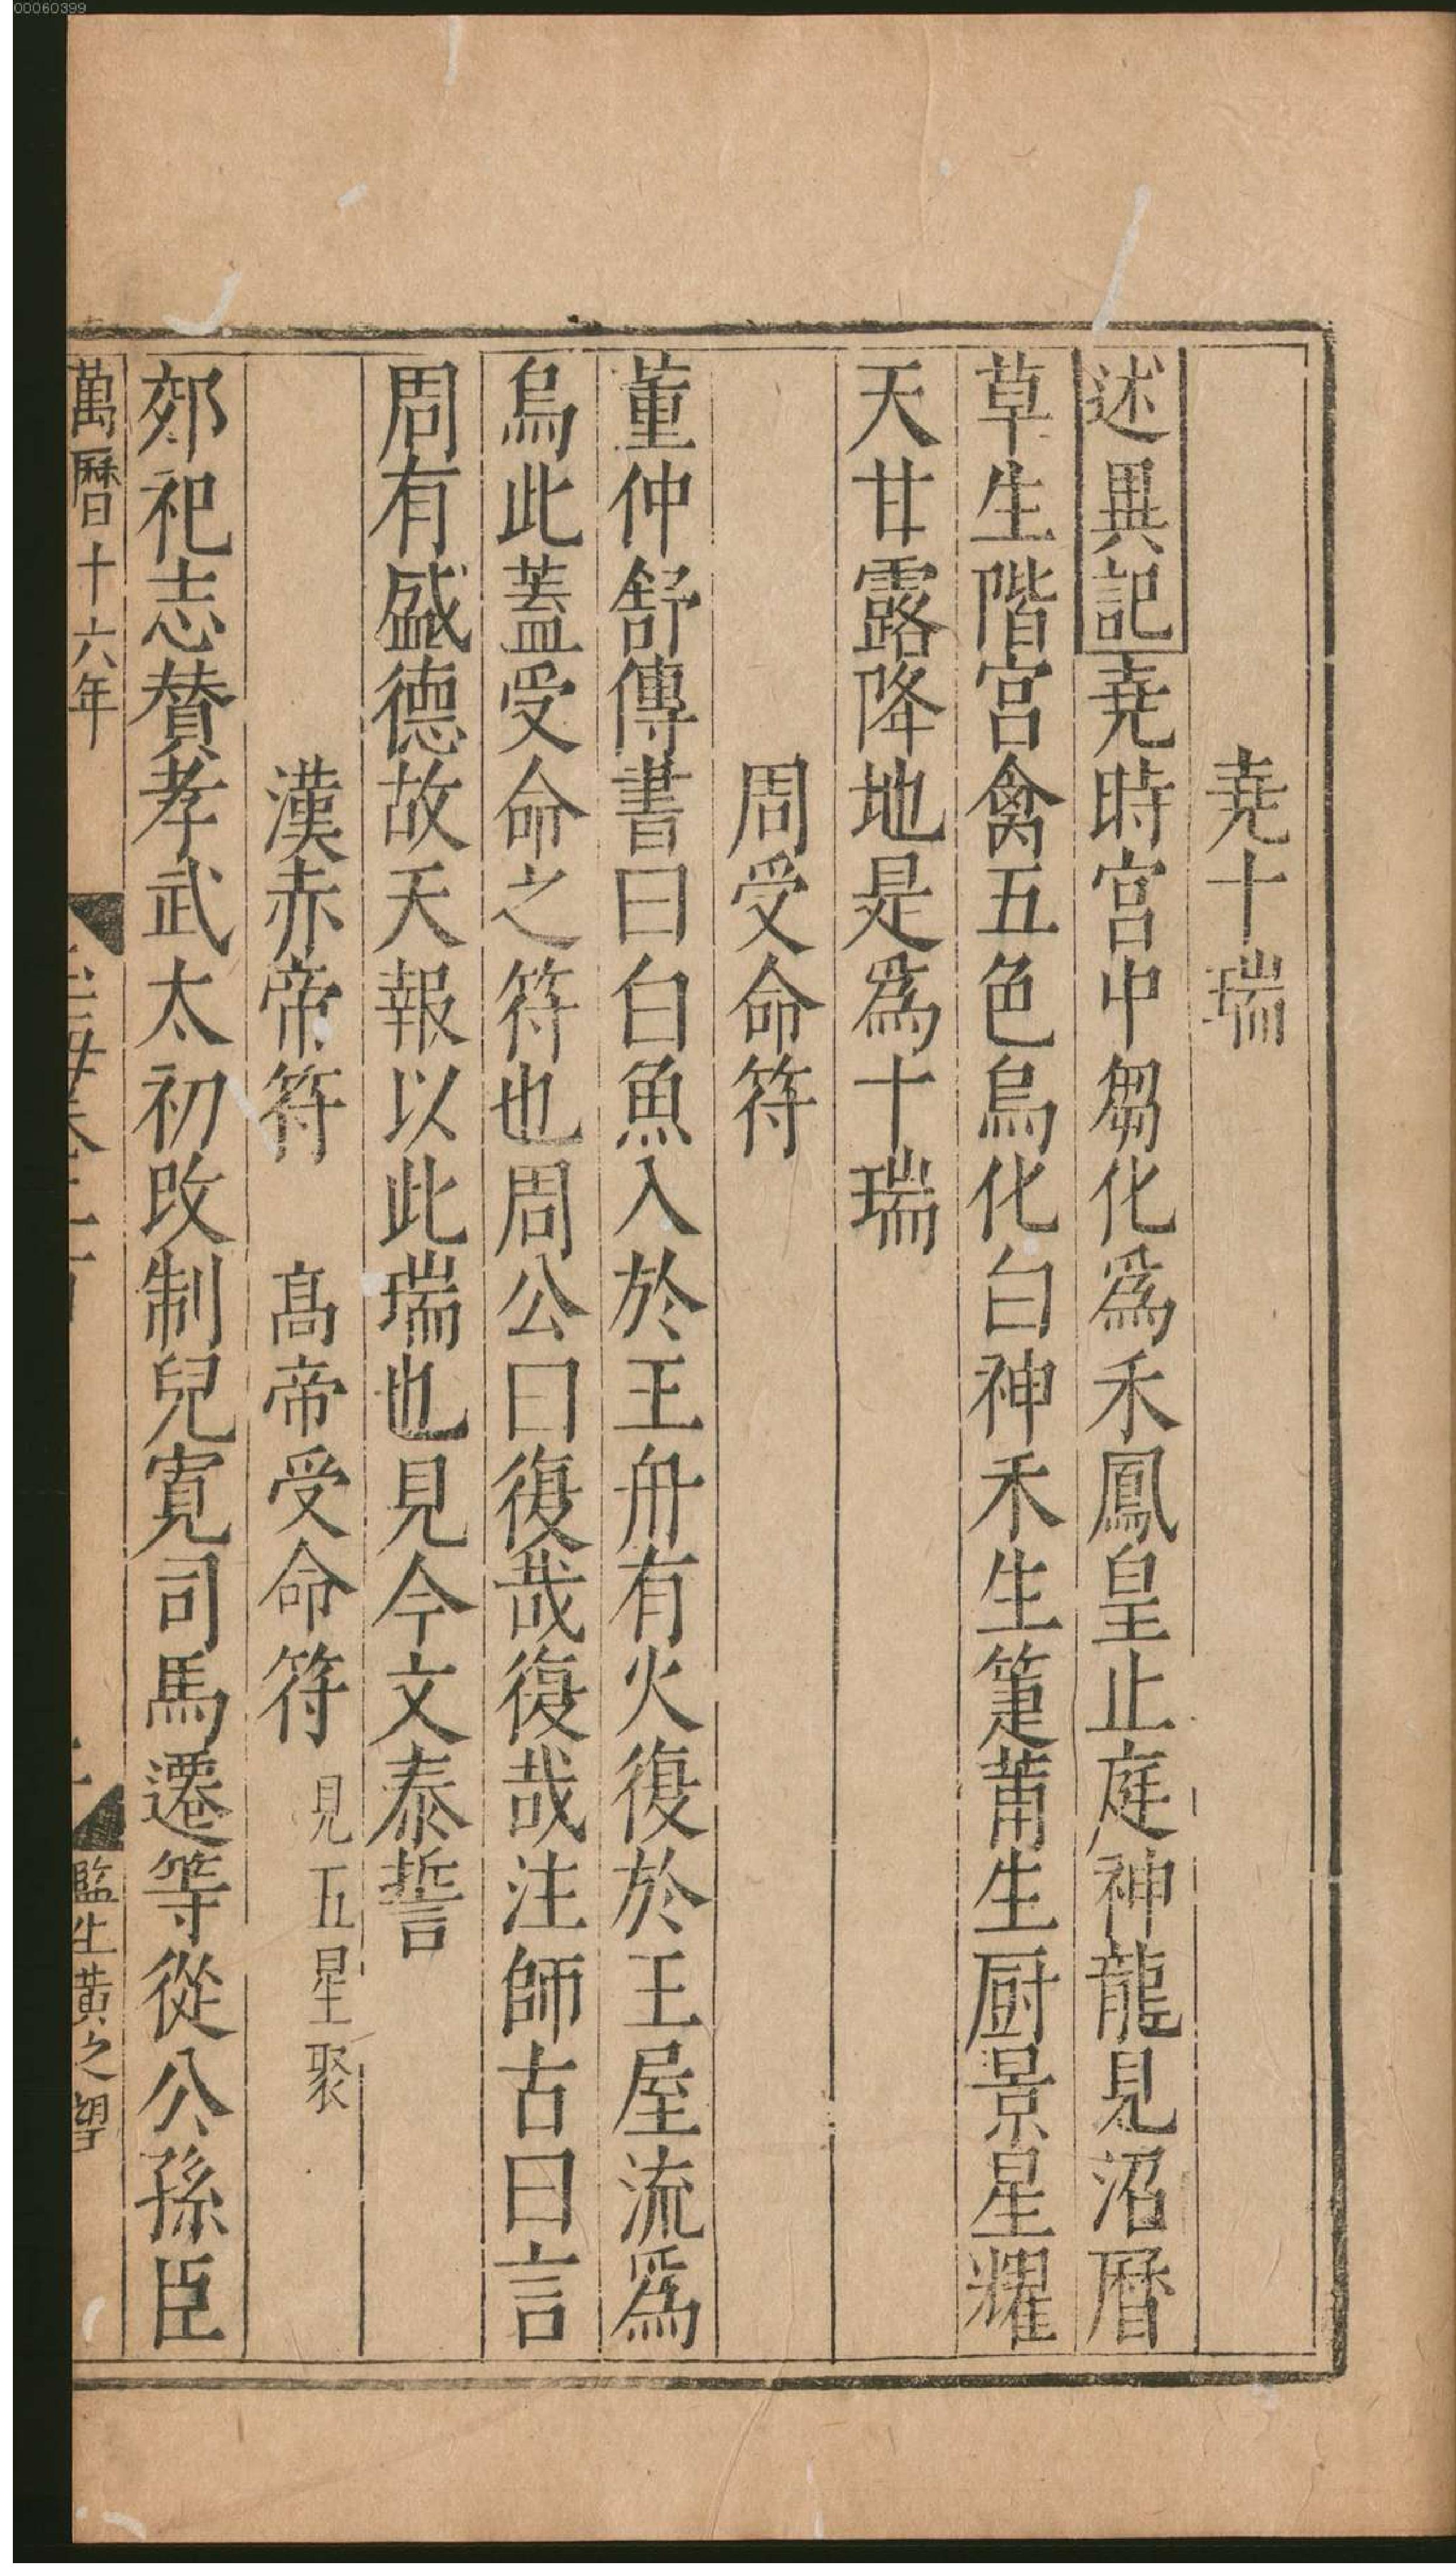 00060399
堯十瑞
述異記堯時宮中芻化爲禾鳳皇止庭神龍見沼曆
草生階宮禽五色烏化白神禾生箑莆生厨景星耀
天甘露降地是爲十瑞
周受命符
董仲舒傳書曰白魚入於王舟有火復於王屋流爲
烏此蓋受命之符也周公曰復哉復哉注師古曰言
周有盛德故天報以此瑞也見今文泰誓
漢赤帝符　高帝受命符　見五星聚
郊祀志賛孝武太初改制兒寬司馬遷等從公孫臣
萬曆十六年　監生黄之